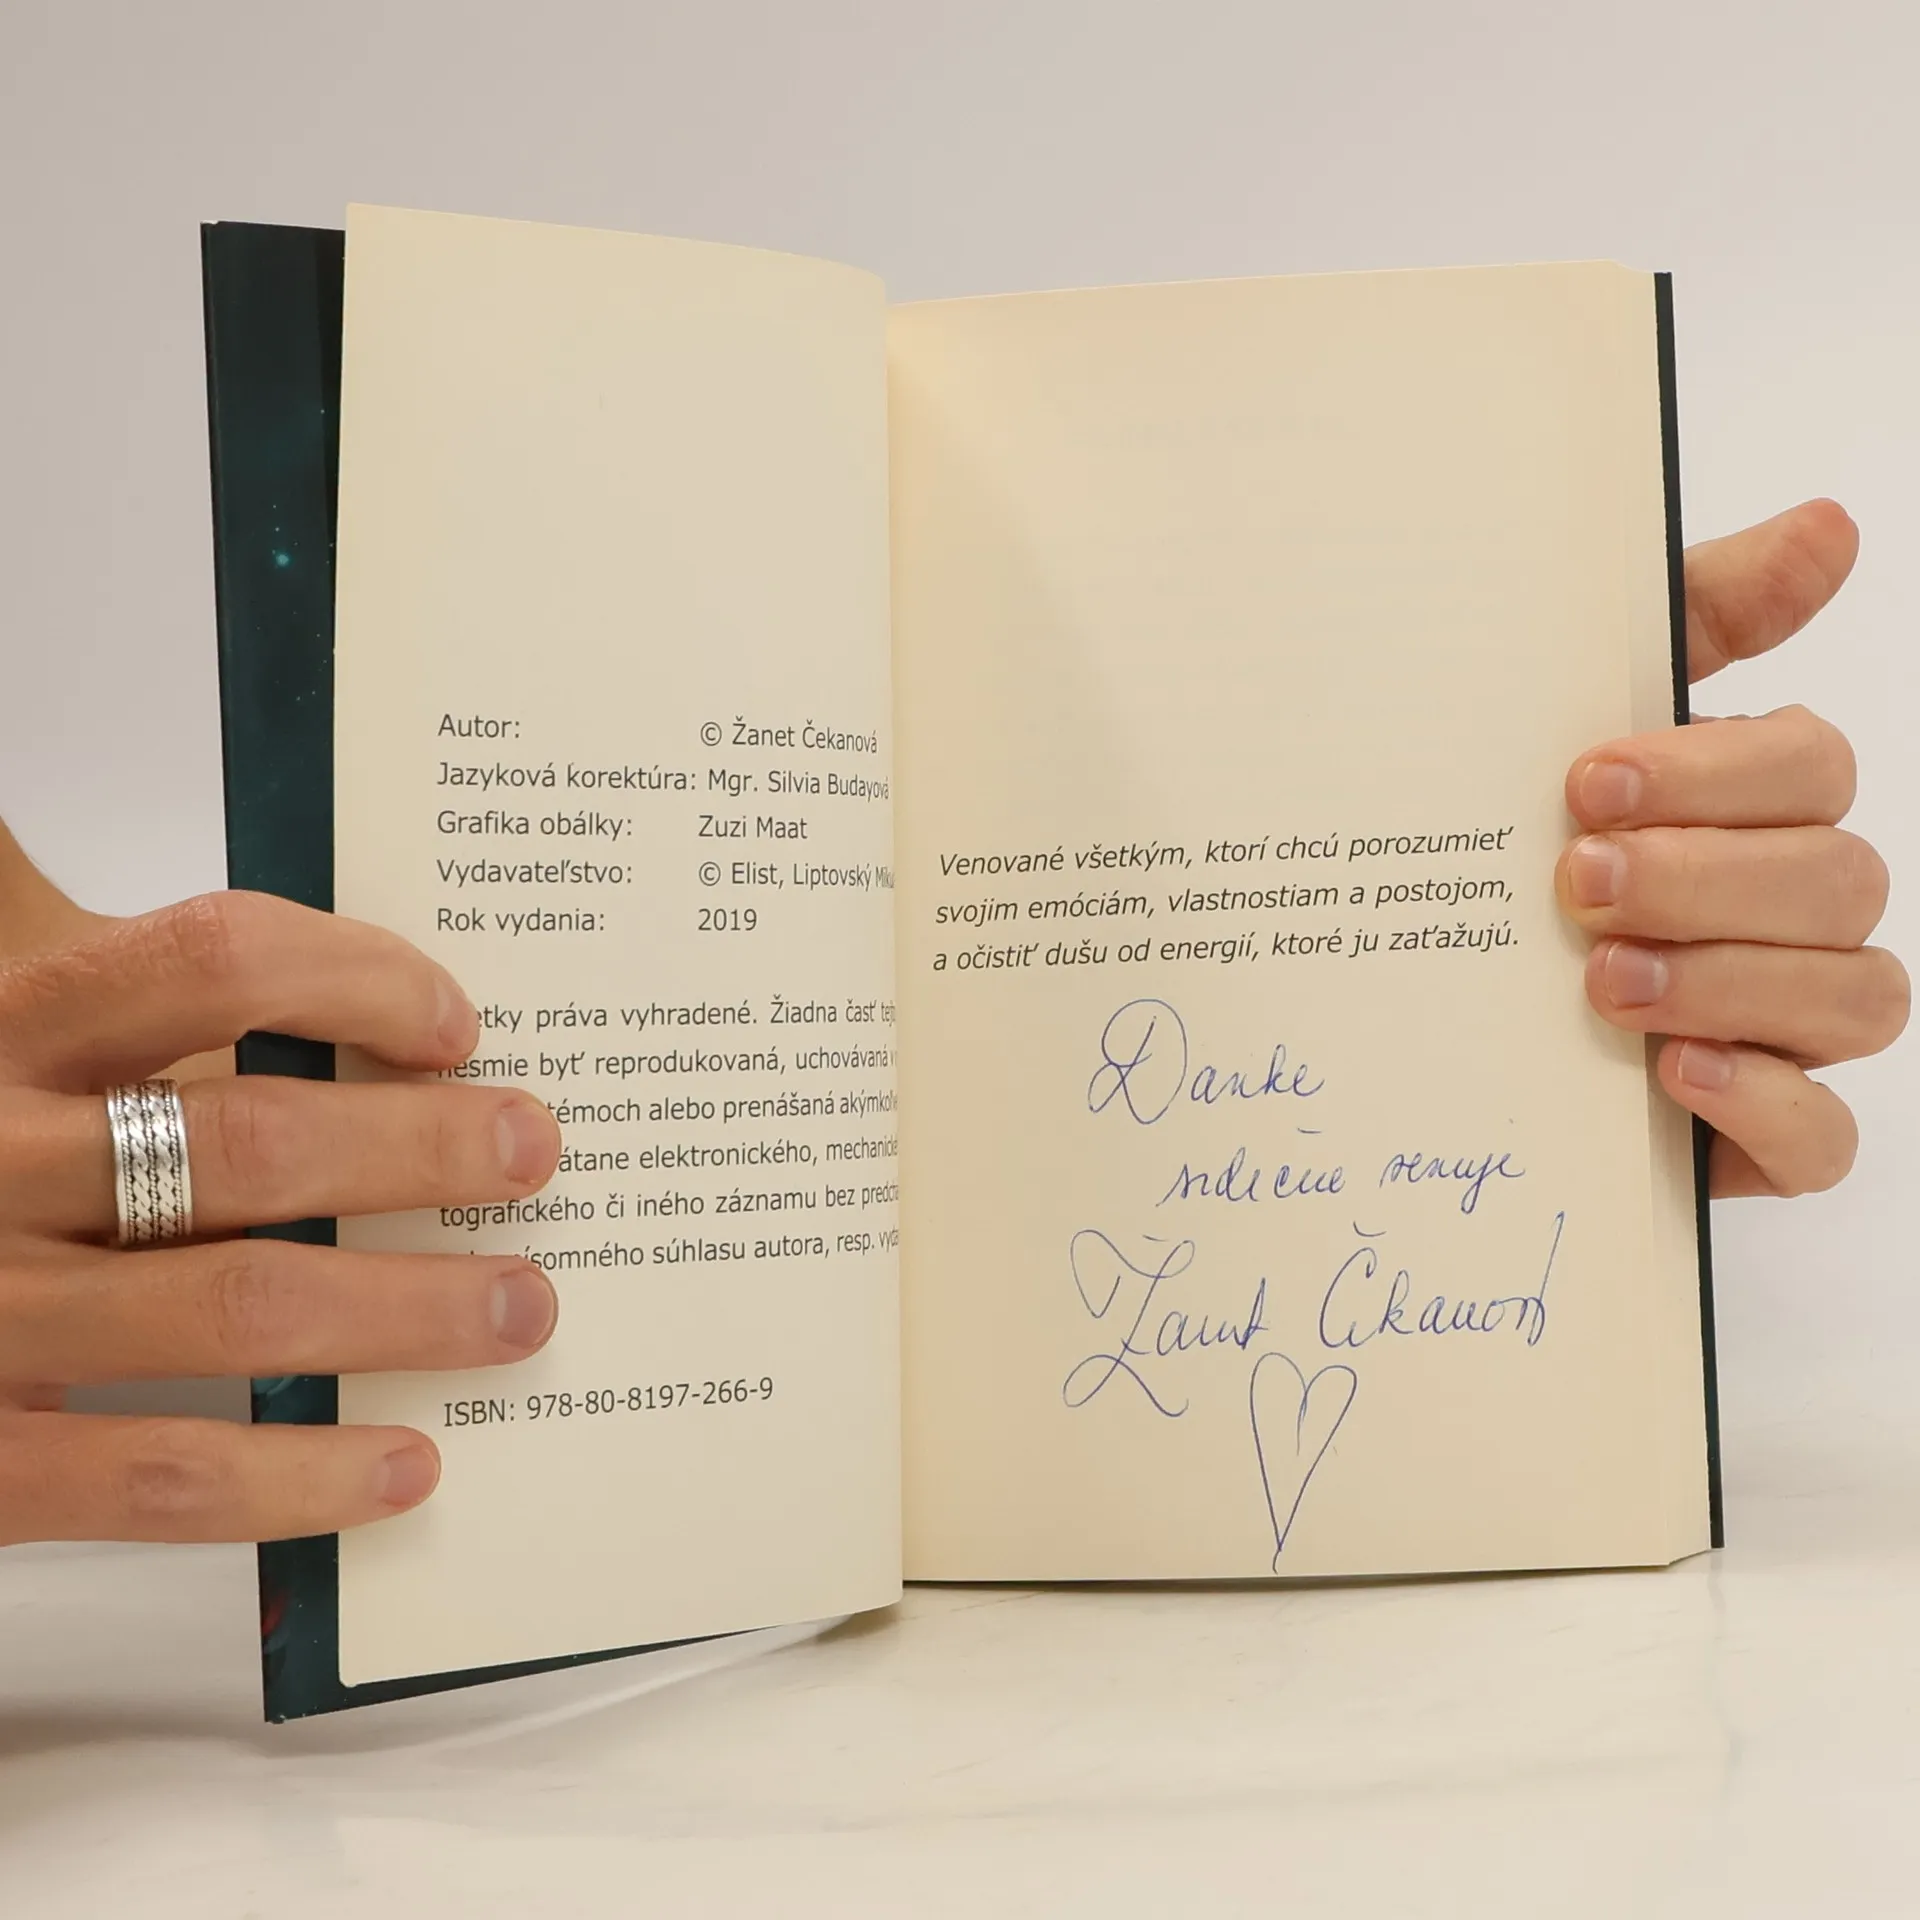 Autor: © Žanet Čekanová
Jazyková korektúra: Mgr. Silvia Budayová
Grafika obálky: Zuzi Maat
Vydavateľstvo: © Elist, Liptovský
Rok vydania: 2019
práva vyhradené. Žiadna časť
nesmie byť reprodukovaná, uchovávaná
alebo prenášaná
elektronického,
tografického či iného záznamu bez
súhlasu autora, resp.
ISBN: 978-80-8197-266-9
Venované všetkým, ktorí chcú porozumieť
svojim emóciám, vlastnostiam a postojom,
a očistiť dušu od energií, ktoré ju zaťažujú.
Danke
srdečne venuje
Žanet Čekanová